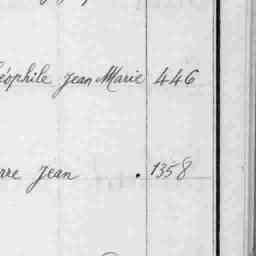 éophile Jean Marie 446
rre Jean . 1358